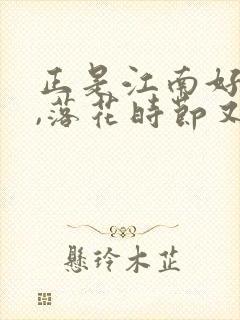 正是江南好
,落花時節又
懸玲木芷